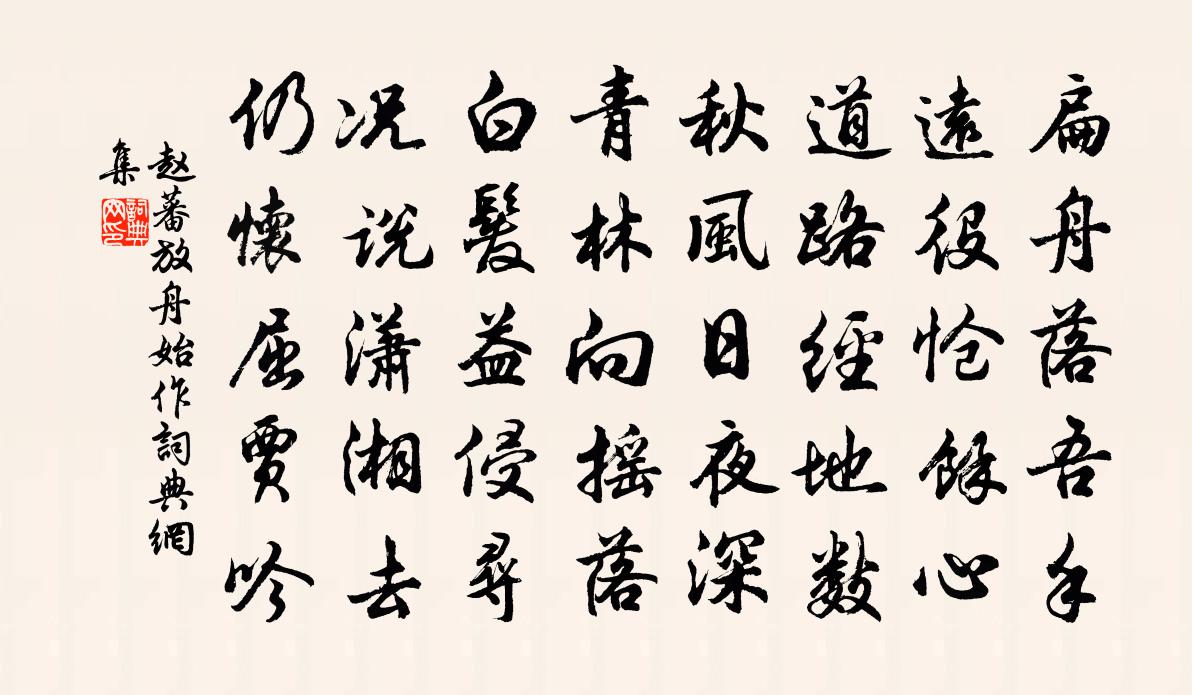 扁舟落吾手
遠役愴餘心
道路經地數
秋風日夜深
青林向搖落
白髮益侵尋
况説瀟湘去
仍懷屈賈吟
赵蕃放舟始作詞典網
集
詞典
网印